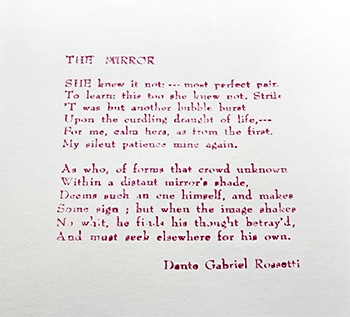 THE MIRROR
SHE knew it not: --- most perfect pain
To learn: this too she knew not. Strife
'T was but another bubble burst
Upon the curdling draught of life,---
For me, calm hers, as from the first.
My silent patience mine again.
As who, of forms that crowd unknown
Within a distant mirror's shade,
Deems such an one himself, and makes
Some sign ; but when the image shakes
No whit, he finds his thought betray'd,
And must seek elsewhere for his own.
Dante Gabriel Rossetti